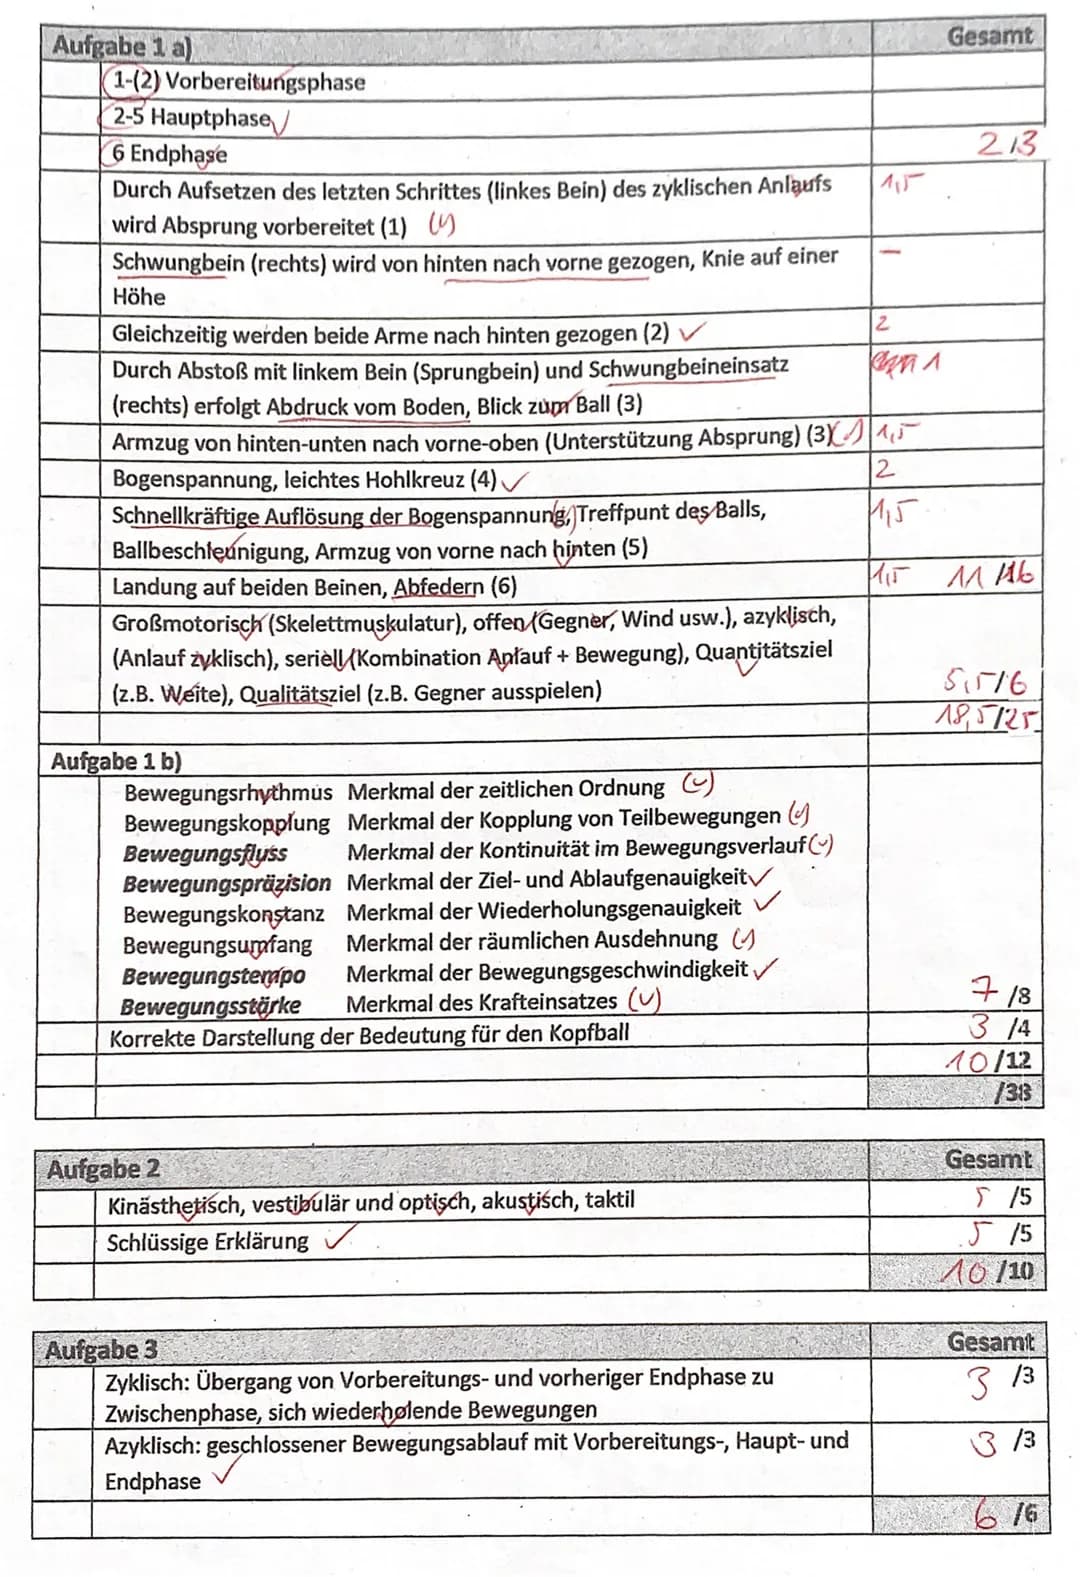 Aufgabe 1 a) Gesamt
1-(2) Vorbereitungsphase
2-5 Hauptphase
6 Endphase 2/3
Durch Aufsetzen des letzten Schrittes (linkes Bein) des zyklischen Anlaufs 1,5
wird Absprung vorbereitet (1)
Schwungbein (rechts) wird von hinten nach vorne gezogen, Knie auf einer –
Höhe
Gleichzeitig werden beide Arme nach hinten gezogen (2) 2
Durch Abstoß mit linkem Bein (Sprungbein) und Schwungbeineinsatz 1
(rechts) erfolgt Abdruck vom Boden, Blick zum Ball (3)
Armzug von hinten-unten nach vorne-oben (Unterstützung Absprung) (3) 1,5
Bogenspannung, leichtes Hohlkreuz (4) 2
Schnellkräftige Auflösung der Bogenspannung, Treffpunt des Balls, 1,5
Ballbeschleunigung, Armzug von vorne nach hinten (5)
Landung auf beiden Beinen, Abfedern (6) 1,5 11/16
Großmotorisch (Skelettmuskulatur), offen (Gegner, Wind usw.), azyklisch,
(Anlauf zyklisch), seriell (Kombination Anlauf + Bewegung), Quantitätsziel
(z.B. Weite), Qualitätsziel (z.B. Gegner ausspielen) 5,5/6
18,5/25
Aufgabe 1 b)
Bewegungsrhythmus Merkmal der zeitlichen Ordnung
Bewegungskopplung Merkmal der Kopplung von Teilbewegungen
Bewegungsfluss Merkmal der Kontinuität im Bewegungsverlauf
Bewegungspräzision Merkmal der Ziel- und Ablaufgenauigkeit
Bewegungskonstanz Merkmal der Wiederholungsgenauigkeit
Bewegungsumfang Merkmal der räumlichen Ausdehnung
Bewegungstempo Merkmal der Bewegungsgeschwindigkeit
Bewegungsstärke Merkmal des Krafteinsatzes 7 /8
Korrekte Darstellung der Bedeutung für den Kopfball 3 /4
10/12
/38
Aufgabe 2 Gesamt
Kinästhetisch, vestibulär und optisch, akustisch, taktil 5 /5
Schlüssige Erklärung 5 /5
10 /10
Aufgabe 3 Gesamt
Zyklisch: Übergang von Vorbereitungs- und vorheriger Endphase zu 3 /3
Zwischenphase, sich wiederholende Bewegungen
Azyklisch: geschlossener Bewegungsablauf mit Vorbereitungs-, Haupt- und 3 /3
Endphase
6 /6